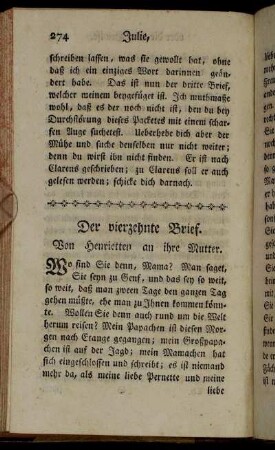 274 Julie,
schreiben lassen, was sie gewollt hat, ohne
daß ich ein einziges Wort darinnen geän-
dert habe. Das ist nun der dritte Brief,
welcher meinem beygefüget ist. Ich muthmaße
wohl, daß es der noch nicht ist, den du bey
Durchstörung dieses Packetes mit einem schar-
fen Auge suchetest. Ueberhebe dich aber der
Mühe und suche denselben nur nicht weiter;
denn du wirst ihn nicht finden. Er ist nach
Clarens geschrieben; zu Clarens soll er auch
gelesen werden; schicke dich darnach.
Der vierzehnte Brief.
Von Henrietten an ihre Mutter.
Wo sind Sie denn, Mama? Man saget,
Sie seyn zu Genf, und das sey so weit,
so weit, daß man zween Tage den ganzen Tag
gehen müßte, ehe man zu Ihnen kommen könn-
te. Wollen Sie denn auch rund um die Welt
herum reisen? Mein Papachen ist diesen Mor-
gen nach Etange gegangen; mein Großpapa-
chen ist auf der Jagd; mein Mamachen hat
sich eingeschlossen und schreibt; es ist niemand
mehr da, als meine liebe Pernette und meine
liebe